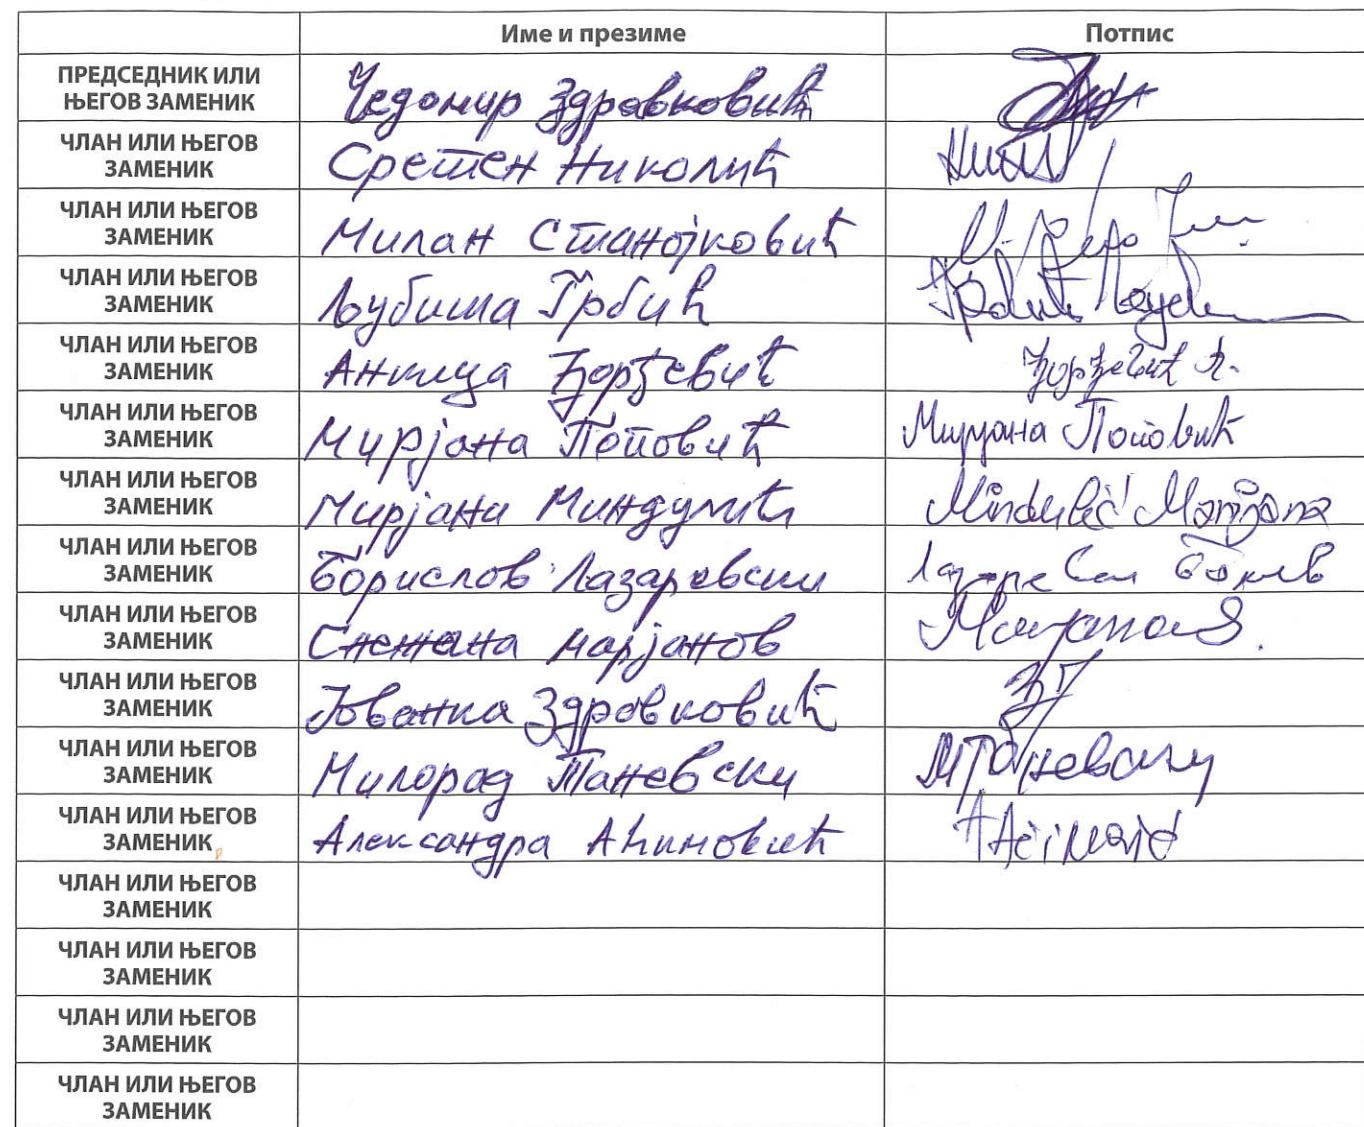 Име и презиме Потпис
ПРЕДСЕДНИК ИЛИ
ЊЕГОВ ЗАМЕНИК
Чедомир Здравковић
ЧЛАН ИЛИ ЊЕГОВ
ЗАМЕНИК
Сретен Николић
ЧЛАН ИЛИ ЊЕГОВ
ЗАМЕНИК
Милан Станојковић
ЧЛАН ИЛИ ЊЕГОВ
ЗАМЕНИК
Љубиша Грбић
ЧЛАН ИЛИ ЊЕГОВ
ЗАМЕНИК
Аница Ђорђевић Ђорђевић А.
ЧЛАН ИЛИ ЊЕГОВ
ЗАМЕНИК
Мирјана Поповић Мирјана Поповић
ЧЛАН ИЛИ ЊЕГОВ
ЗАМЕНИК
Мирјана Миндулић Mindulić Mirijana
ЧЛАН ИЛИ ЊЕГОВ
ЗАМЕНИК
Борислов Лазаревски
ЧЛАН ИЛИ ЊЕГОВ
ЗАМЕНИК
Снежана Марјанов
ЧЛАН ИЛИ ЊЕГОВ
ЗАМЕНИК
Јованка Здровковић
ЧЛАН ИЛИ ЊЕГОВ
ЗАМЕНИК
Милорад Таневски
ЧЛАН ИЛИ ЊЕГОВ
ЗАМЕНИК
Александра Аћимовић
ЧЛАН ИЛИ ЊЕГОВ
ЗАМЕНИК
ЧЛАН ИЛИ ЊЕГОВ
ЗАМЕНИК
ЧЛАН ИЛИ ЊЕГОВ
ЗАМЕНИК
ЧЛАН ИЛИ ЊЕГОВ
ЗАМЕНИК